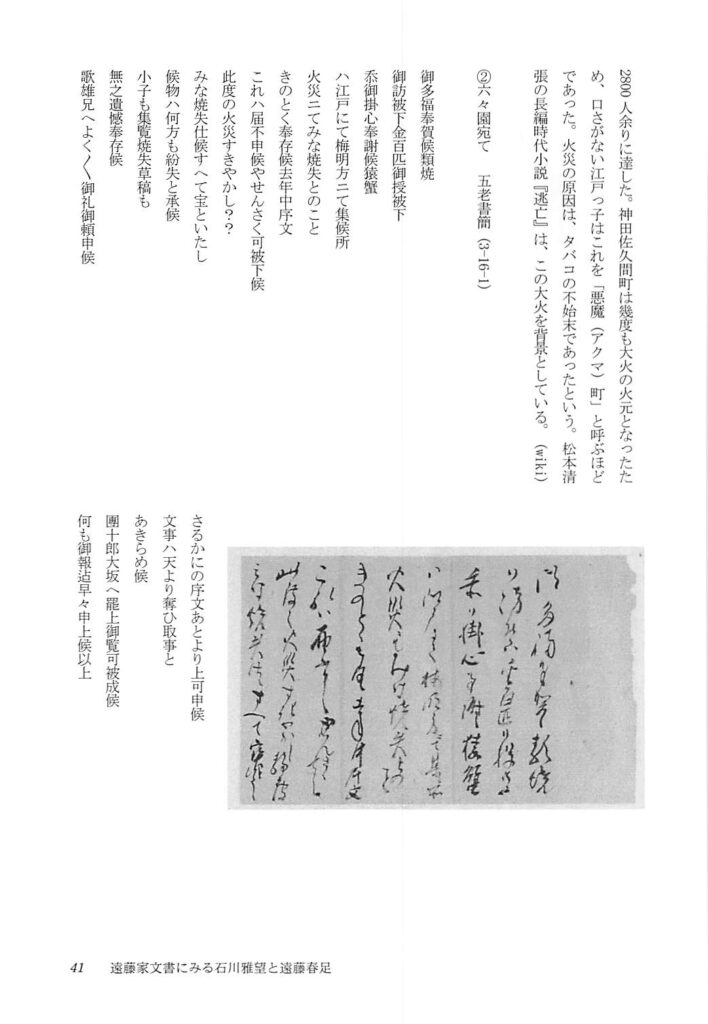 2800 人余りに達した。神田佐久間町は幾度も大火の火元となったた
め、口さがない江戸っ子はこれを「悪魔（アクマ）町」と呼ぶほど
であった。火災の原因は、タバコの不始末であったという。松本清
張の長編時代小説『逃亡』は、この大火を背景としている。（wiki）
②六々園宛て　五老書簡（3-16-1）
御多福奉賀候類焼
御訪被下金百匹御授被下
忝御掛心奉謝候猿蟹
ハ江戸にて梅明方ニて集候所
火災ニてみな焼失とのこと
きのとく奉存候去年中序文
これハ届不申候やせんさく可被下候
此度の火災すきやかし？？
みな焼失仕候すへて宝といたし
候物ハ何方も紛失と承候
小子も集覧焼失草稿も
無之遺憾奉存候
歌雄兄へよく〱御礼御頼申候
さるかにの序文あとより上可申候
文事ハ天より奪ひ取事と
あきらめ候
團十郎大坂へ罷上御覧可被成候
何も御報迠早々申上候以上
41 遠藤家文書にみる石川雅望と遠藤春足